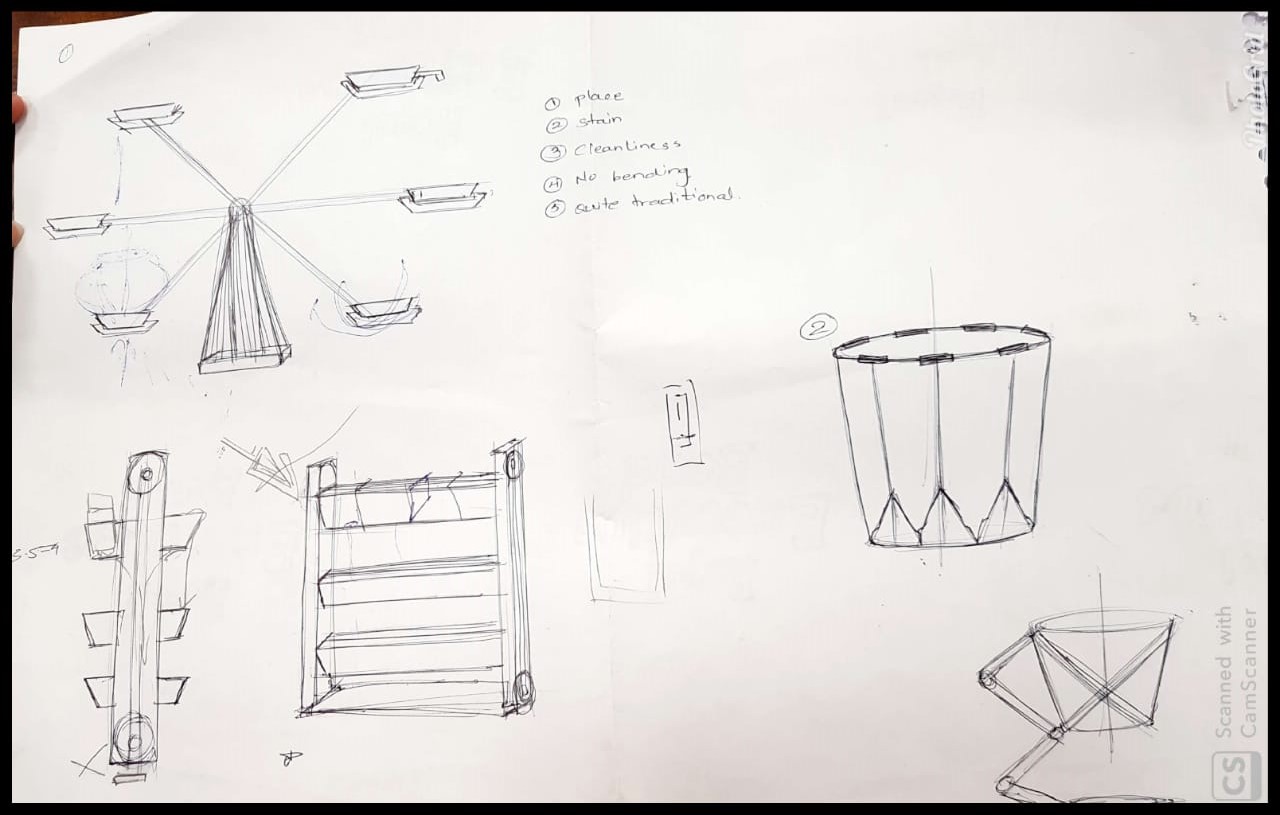 ①
① place
② stain
③ Cleanliness
④ No bending
⑤ Quite traditional.
②
Scanned with
CamScanner
CS